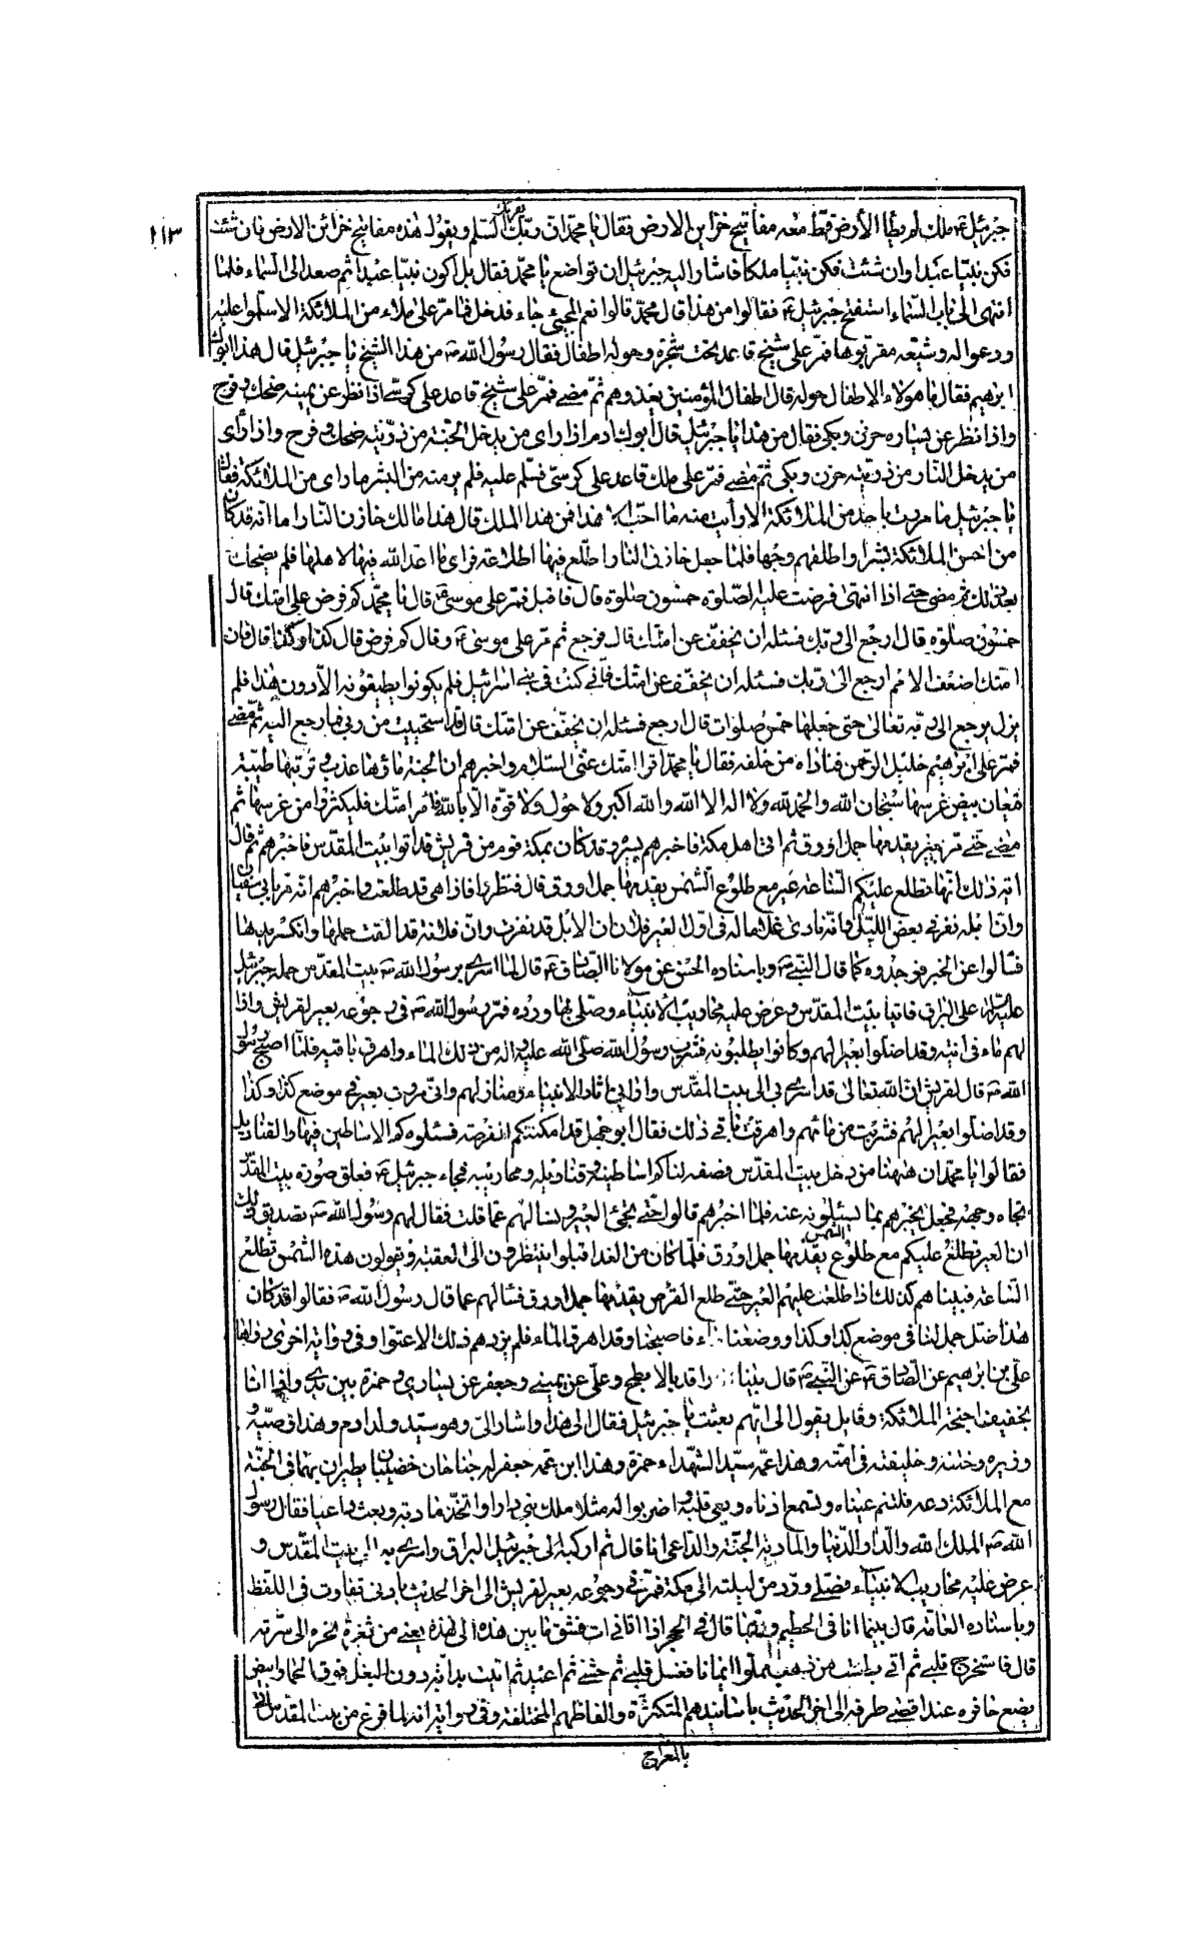 ١١٣
جبرئيل ع ملك لم يطأ الأرض قط معه مفاتيح خزاين الارض فقال يا محمد ان ربك يقرئك السلم ويقول هذه مفاتيح خزائن الارض فان شئت
فكن نبيا عبدا وان شئت فكن نبيا ملكا فاشار اليه جبرئيل ان تواضع يا محمد فقال بل اكون نبيا عبدا ثم صعد الى السماء فلما
انتهى الى باب السماء استفتح جبرئيل ع فقالوا من هذا قال محمد قالوا نعم المجيئ جاء فدخل فما مر على ملاء من الملائكة الا سلموا عليه
ودعوا له وشيعه مقربوها فمر على شيخ قاعد تحت شجرة وحوله اطفال فقال رسول الله ص من هذا الشيخ يا جبرئيل قال هذا ابوك
ابرهيم فقال ما هولاء الاطفال حوله قال اطفال المؤمنين يغذوهم ثم مضى فمر على شيخ قاعد على كرسى اذا نظر عن يمينه ضحك وفرح
واذا نظر عن يساره حزن وبكى فقال من هذا يا جبرئيل قال ابوك ادم اذا راى من يدخل الجنة من ذريته ضحك وفرح واذا راى
من يدخل النار من ذريته حزن وبكى ثم مضى فمر على ملك قاعد على كرسى فسلم عليه فلم ير منه من البشر ما راى من الملائكة فقال
يا جبرئيل ما مررت باحد من الملائكة الا رأيت منه ما احب الا هذا فمن هذا الملك قال هذا مالك خازن النار اما انه قد كان
من احسن الملائكة بشرا واطلقهم وجها فلما جعل خازن النار اطلع فيها اطلاعة فراى ما اعد الله فيها لاهلها فلم يضحك
بعد ذلك ثم مضى حتى اذا انتهى فرضت عليه الصلوة خمسون صلوة قال فاقبل فمر على موسى ع قال يا محمد كم فرض على امتك قال
خمسون صلوة قال ارجع الى ربك فسئله ان يخفف عن امتك قال فرجع ثم مر على موسى ع وقال كم فرض قال كذا وكذا قال فان
امتك اضعف الامم ارجع الى ربك فسئله ان يخفف عن امتك فانى كنت فى بنى اسرائيل فلم يكونوا يطيقونه الا دون هذا فلم
يزل يرجع الى ربه تعالى حتى جعلها خمس صلوات قال ارجع فسئله ان يخفف عن امتك قال قد استحييت من ربى فما رجع اليه ثم مضى
فمر على ابرهيم خليل الرحمن فناداه من خلفه فقال يا محمد اقرا امتك عنى السلام واخبرهم ان الجنة ماؤها عذب وتربتها طيبة
قيعان بيض غرسها سبحان الله والحمد لله ولا اله الا الله والله اكبر ولا حول ولا قوة الا بالله فامر امتك فليكثروا من غرسها ثم
مضى حتى مر بعير يقدمها جمل اورق ثم اتى اهل مكة فاخبرهم بسيره وقد كان بمكة قوم من قريش قد اتوا بيت المقدس فاخبرهم ثم قال
اية ذلك انها تطلع عليكم الساعة عير مع طلوع الشمس يقدمها جمل اورق قال فنظروا فاذا هى قد طلعت واخبرهم انه مر بابى سفيان
وان ابله نفرت بعض الليل وانه نادى غلاما له فى اول العير يا فلان ان الابل قد نفرت وان فلانة قد القت حملها وانكسر يدها
فسالوا عن الخبر فوجدوه كما قال النبى ص وباسناده الحسن عن مولانا الصادق ع قال لما اسرى برسول الله ص الى بيت المقدس حمله جبرئيل
عليه السلام على البراق فاتيا بيت المقدس وعرض عليه محاريب الانبياء وصلى بها ورده فمر رسول الله ص فى رجوعه بعير لقريش واذا
لهم ماء فى انية وقد اضلوا بعيرا لهم وكانوا يطلبونه فشرب رسول الله صلى الله عليه واله من ذلك الماء واهرق باقيه فلما اصبح رسول
الله ص قال لقريش ان الله تعالى قد اسرى بى الى بيت المقدس وارانى اثار الانبياء ومنازلهم وانى مررت بعير فى موضع كذا وكذا
وقد اضلوا بعيرا لهم فشربت من مائهم واهرقت باقى ذلك فقال ابو جهل قد امكنتكم الفرصة فسئلوه كم الاساطين فيها والقناديل
فقالوا يا محمد ان ههنا من دخل بيت المقدس فصف لنا كم اساطينه وقناديله ومحاريبه فجاء جبرئيل ع فعلق صورة بيت المقدس
تجاه وجهه فجعل يخبرهم بما يسئلونه عنه فلما اخبرهم قالوا حتى يجئ العير ونسالهم عما قلت فقال لهم رسول الله ص تصديق ذلك
ان العير تطلع عليكم مع طلوع الشمس يقدمها جمل اورق فلما كان من الغد اقبلوا ينتظرون الى العقبة ويقولون هذه الشمس تطلع
الساعة فبينا هم كذلك اذا طلعت عليهم العير حتى طلع القرص يقدمها جمل اورق فسئالهم عما قال رسول الله ص فقالوا قد كان
هذا ضل جمل لنا فى موضع كذا وكذا ووضعنا ماء فاصبحنا وقد اهرق الماء فلم يزدهم ذلك الا عتوا وفى رواية اخرى رواها
على بن ابرهيم عن الصادق ع عن النبى ص قال بينا انا راقد بالابطح وعلى عن يمينى وجعفر عن يسارى وحمزة بين يدى واذا انا
بخفيف اجنحة الملائكة وقايل يقول الى ايهم بعثت يا جبرئيل فقال الى هذا واشار الى وهو سيد ولد ادم وهذا وصيه و
وزيره وختنه وخليفته فى امته وهذا عمه سيد الشهداء حمزة وهذا ابن عمه جعفر له جناحان خضيبان يطير بهما فى الجنة
مع الملائكة دعه فلتنم عيناه ولتسمع اذناه ويعى قلبه واضربوا له مثلا ملك بنى دارا واتخذ مادبة وبعث داعيا فقال رسول
الله ص الملك الله والدار الدنيا والمادبة الجنة والداعى انا قال ثم اركبه الى جبرئيل البراق واسرى به الى بيت المقدس و
عرض عليه محاريب الانبياء فصلى ورد من ليلته الى مكة فمر فى رجوعه بعير لقريش الى اخر الحديث بادنى تفاوت فى اللفظ
وباسناده العامة قال بينما انا فى الحطيم وربما قال فى الحجر اذا اتانى ات فشق ما بين هذه الى هذه يعنى من ثغرة نحره الى سرته
قال فاستخرج قلبى ثم اتى بطست من ذهب مملوا ايمانا فغسل قلبى ثم حشى ثم اعيد ثم اتيت بدابة دون البغل فوق الحمار ابيض
يضع حافره عند اقصى طرفه الى اخر الحديث باسانيدهم المتكثرة والفاظهم المختلفة وفى رواية انه لما فرغ من بيت المقدس اتى
بالمعراج